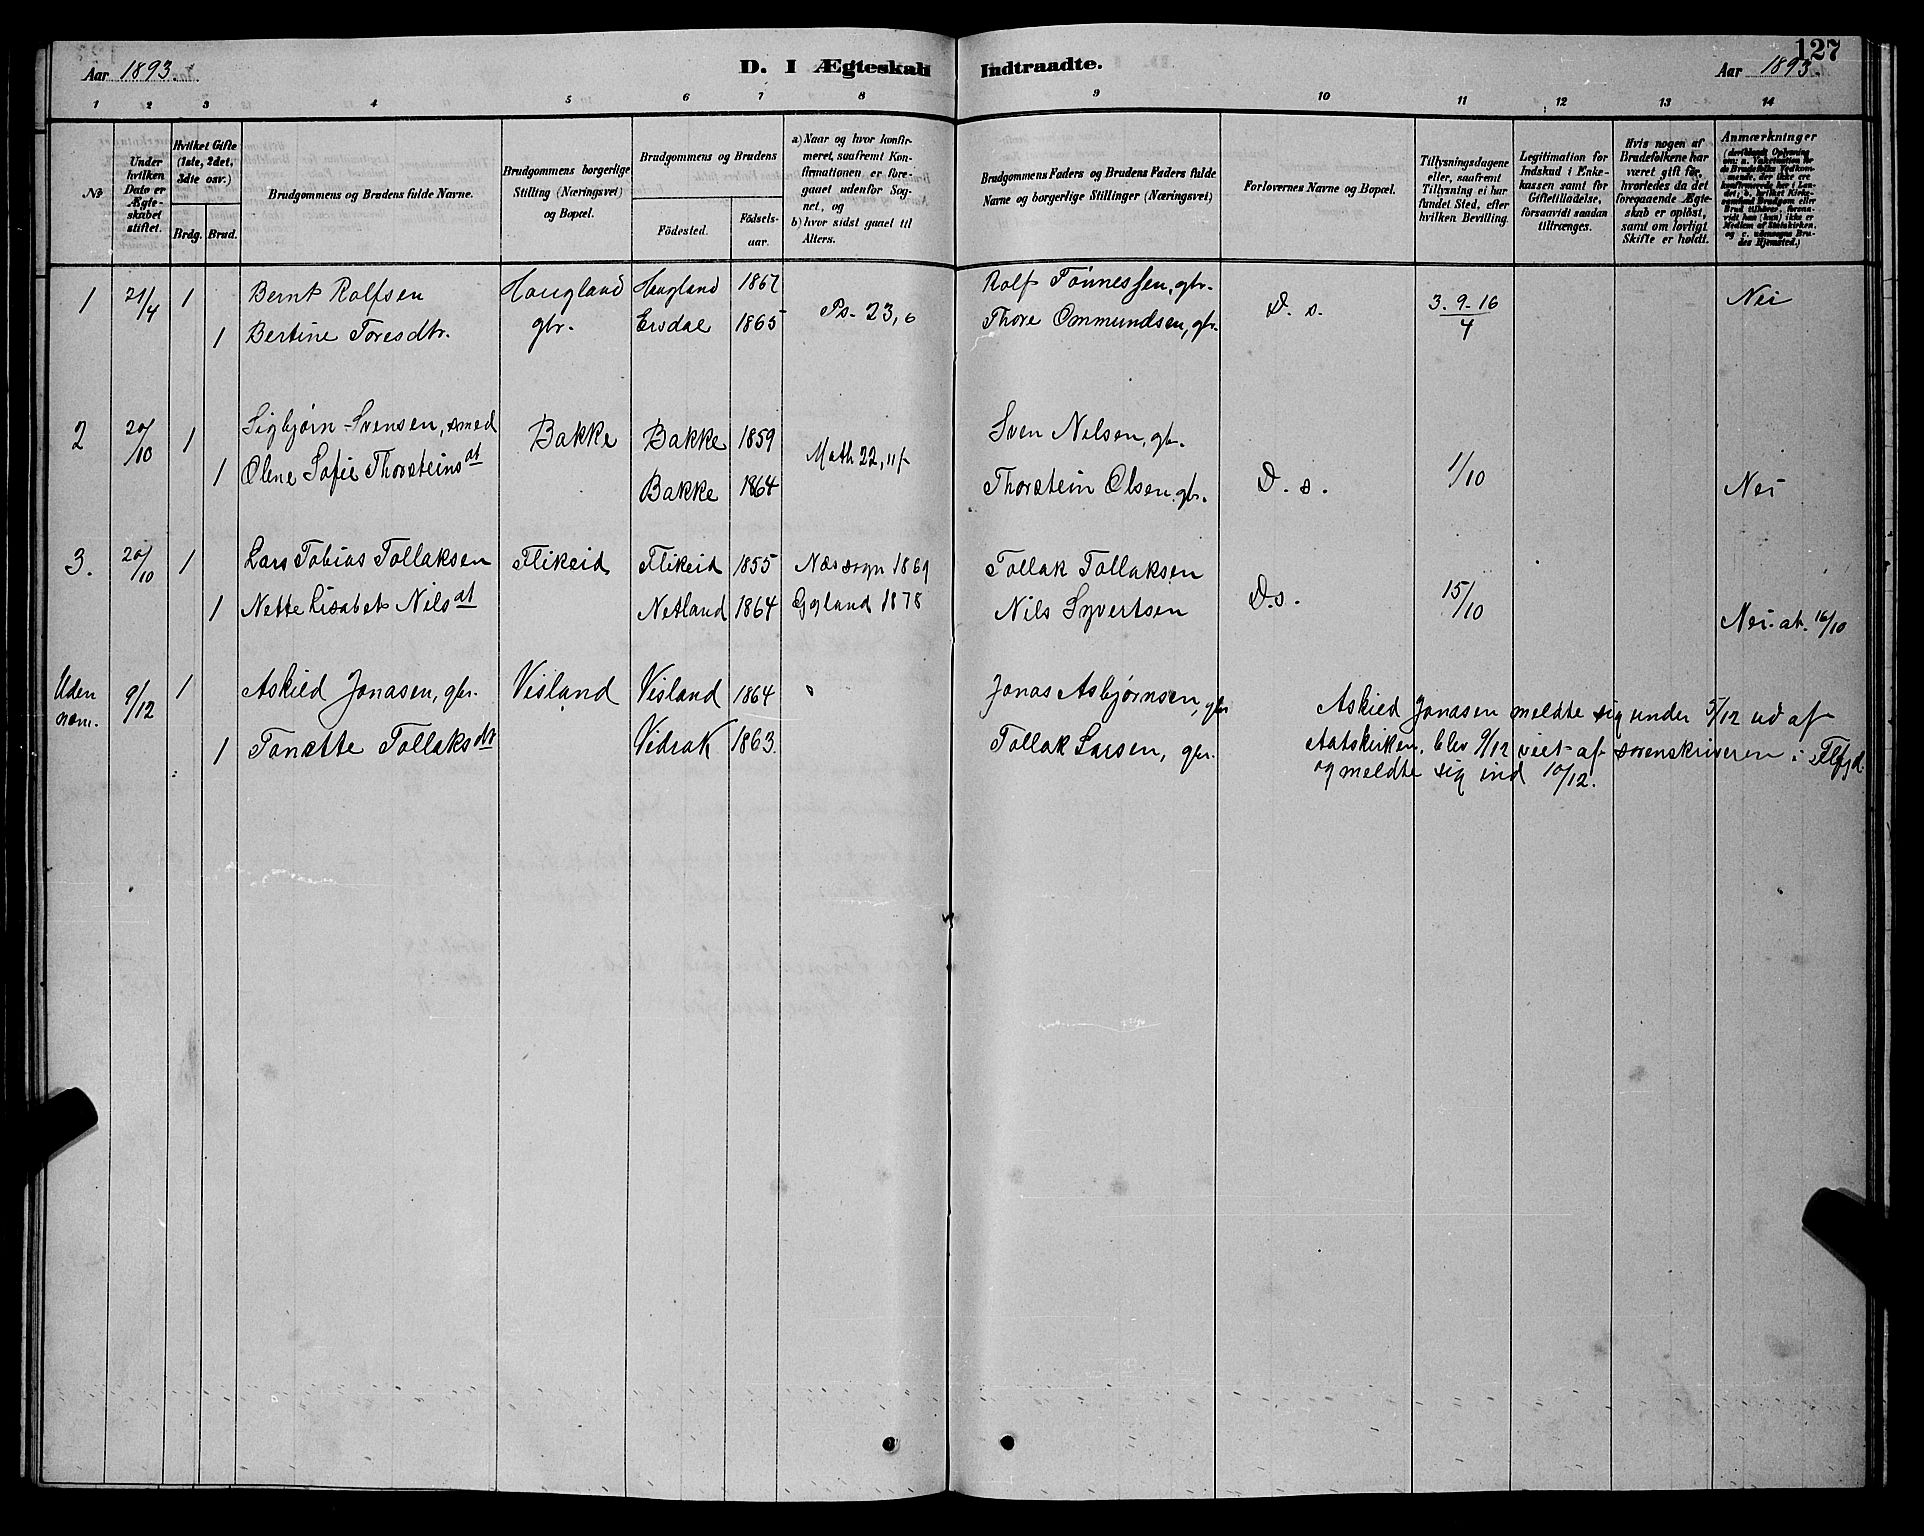 127
Aar 1893.
D. I Ægteskab Indtraadte.
Aar 1893.
1 2 3 4 5 6 7 8 9 10 11 12 13 14
No
Under hvilken Dato er Ægteskabet stiftet.
Hvilket Gifte (1ste, 2det, 3die osv.)
Brdg. Brud.
Brudgommens og Brudens fulde Navne.
Brudgommens borgerlige Stilling (Næringsvei) og Bopæl.
Brudgommens og Brudens
Födested.
Födselsaar.
a) Naar og hvor konfirmeret, saafremt Konfirmationen er foregaaet udenfor Sognet, og
b) hvor sidst gaaet til Alters.
Brudgommens Faders og Brudens Faders fulde Navne og borgerlige Stillinger (Næringsvei)
Forlovernes Navne og Bopæl.
Tillysningsdagene eller, saafremt Tillysning ei har fundet Sted, efter hvilken Bevilling.
Legitimation for Indskud i Enkekassen samt for Giftetilladelse, forsaavidt saadan tiltrænges.
Hvis nogen af Brudefolkene har været gift før, hvorledes da det foregaaende Ægteskab er opløst, samt om lovligt Skifte er holdt.
Anmærkninger
1 21/4 1 Bernt Rolfsen Haugland Haugland 1867 Rolf Tönnessen, gbr. 3. 9. 16/4 Nei
1 Bertine Toresdtr. gbr. Ersdal 1865 Ps. 23,6 Thore Ommundsen, gbr. D. s.
2 20/10 1 Sigbjørn Svensen, smed Bakke Bakke 1859 Math 22, 11f Sven Nilsen, gbr.
1 Olene Sofie Thorsteinsdt Bakke 1864 Thorstein Olsen, gbr. D. s. 1/10 Nei
3. 20/10 1 Lars Tobias Tollaksen Flikeid Flikeid 1855 Næs sogn 1869 Tollak Tollaksen
1 Nette Lisabet Nilsdt Netland 1864 Gyland 1878 Nils Syvertsen D. s. 15/10 Nei. at. 16/10
Uden nom. 9/12 1 Askild Jonasen, gbr. Visland Visland 1864 Jonas Asbjørnsen, gbr
1 Tonette Tollaksdtr Vidrak 1863 Tollak Larsen, gbr.
Askild Jonasen meldte sig under 5/12 ud af
statskirken, blev 9/12 viet af sorenskriveren i Flfjd.
og meldte sig ind 10/12.